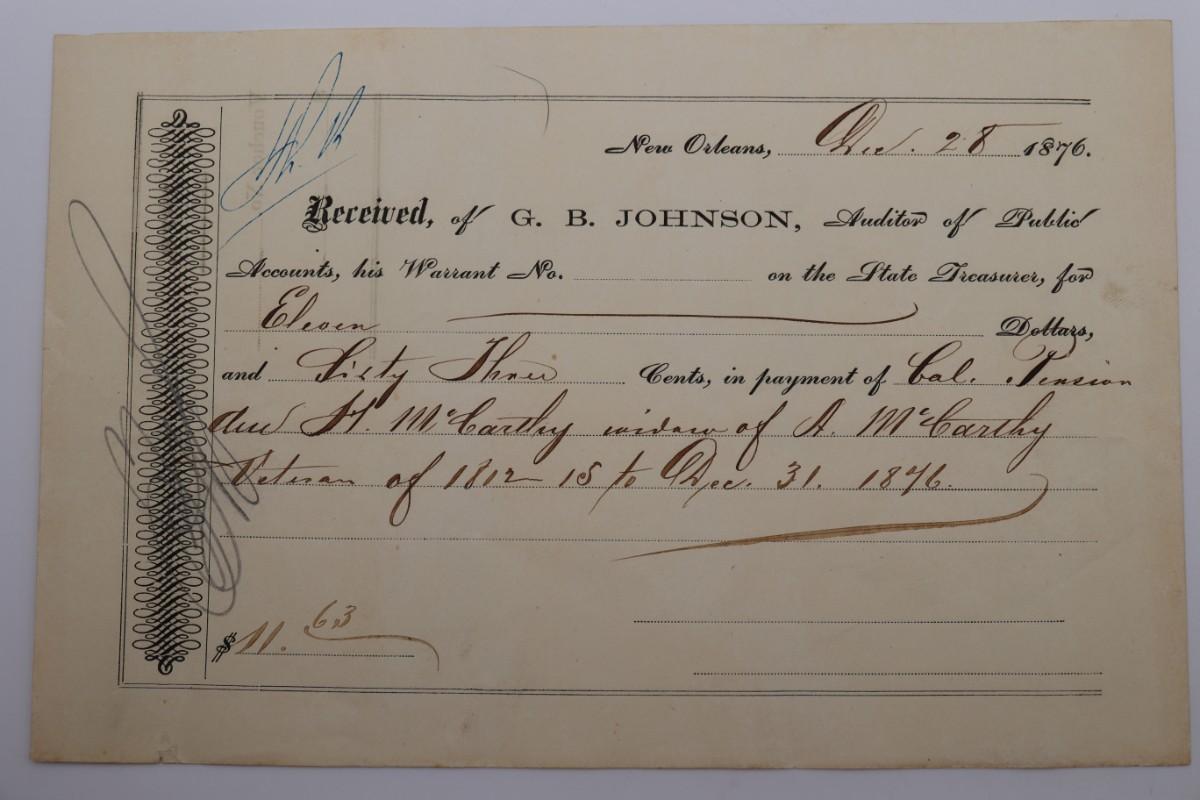 New Orleans, Dec. 28 1876.
Received, of G. B. JOHNSON, Auditor of Public
Accounts, his Warrant No. on the State Treasurer, for
Eleven Dollars,
and Sixty Three Cents, in payment of Bal. Pension
due H. McCarthy widow of A. McCarthy
Veteran of 1812-15 to Dec. 31. 1876.
$11.63